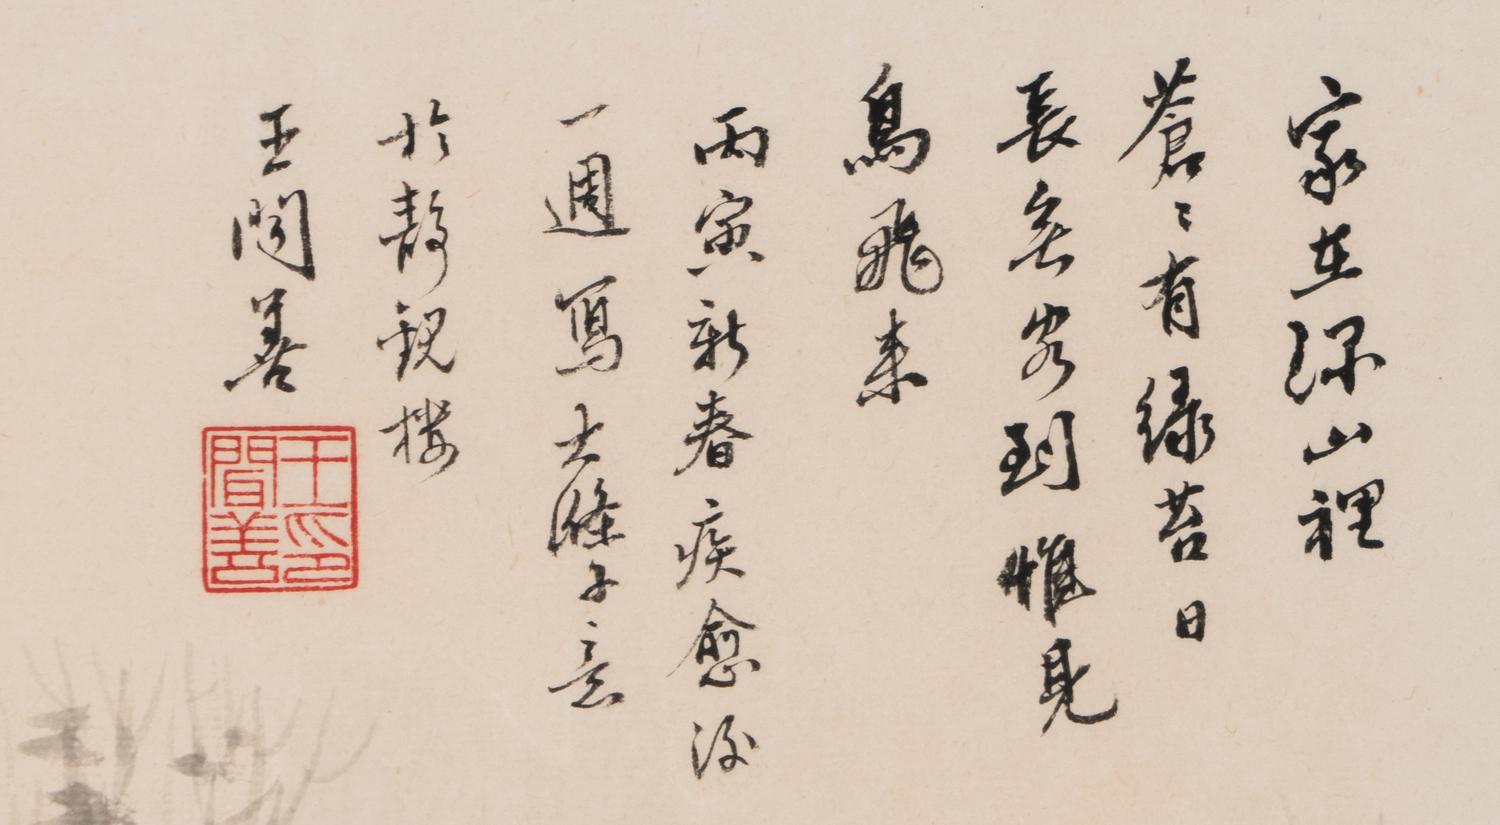 家在深山裡
蒼〻有綠苔日
長無客到惟見
鳥飛來
丙寅新春疾愈後
一週寫大滌子意
於靜觀樓
王問善
王印間善